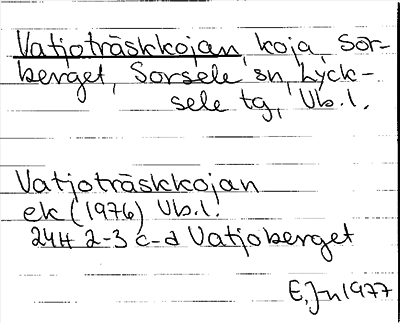 Vatjoträskkojan, koja, Sor-
berget, Sorsele sn, Lyck-
sele tg, Vb.l.
Vatjoträskkojan
ek (1976) Vb.l.
24H 2-3 c-d Vatjoberget
E.Jn 1977